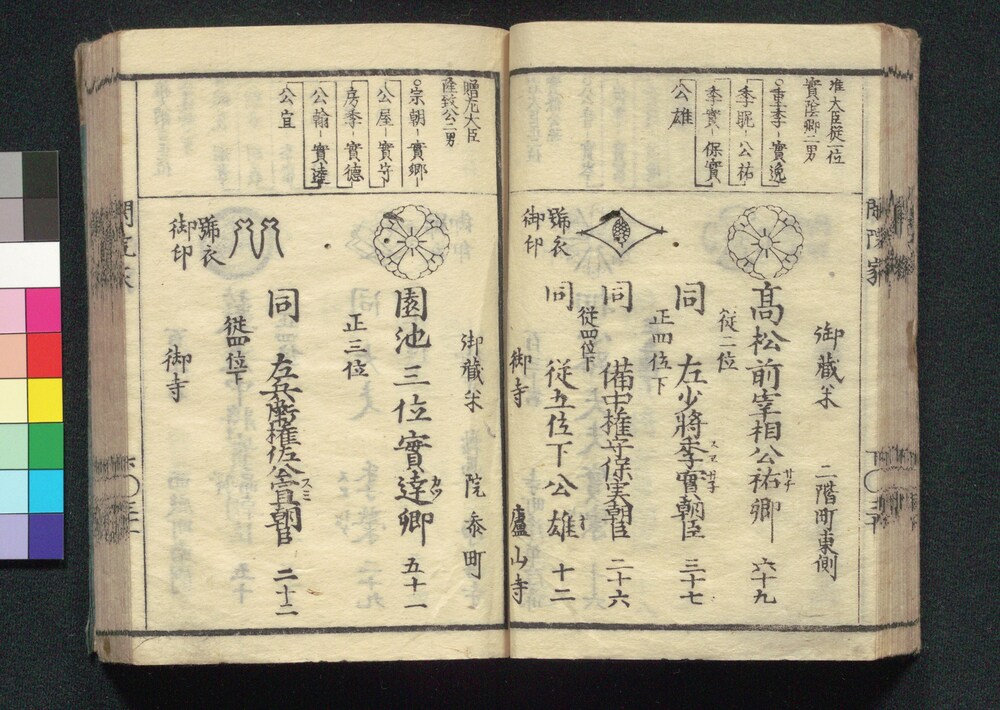 閑院家
准大臣従一位
實陰卿二男
重季-實逸
季昵-公祐
季實-保實
公雄
御藏米 二階町東側
髙松前宰相公祐卿 六十九
従二位
同 左少將季實朝臣 三十七
正四位下
同 備中権守保実朝臣 二十六
従四位下
同 従五位下公雄 十二
雜衣
御印
御寺 廬山寺
贈左大臣
隆致公二男
宗朝-實郷
公屋-實守
房季-實德
公翰-實達
公宜
御藏米 院参町
園池三位實達卿 五十一
正三位
同 左兵衛権佐公宜朝臣 二十二
従四位下
雜衣
御印
御寺